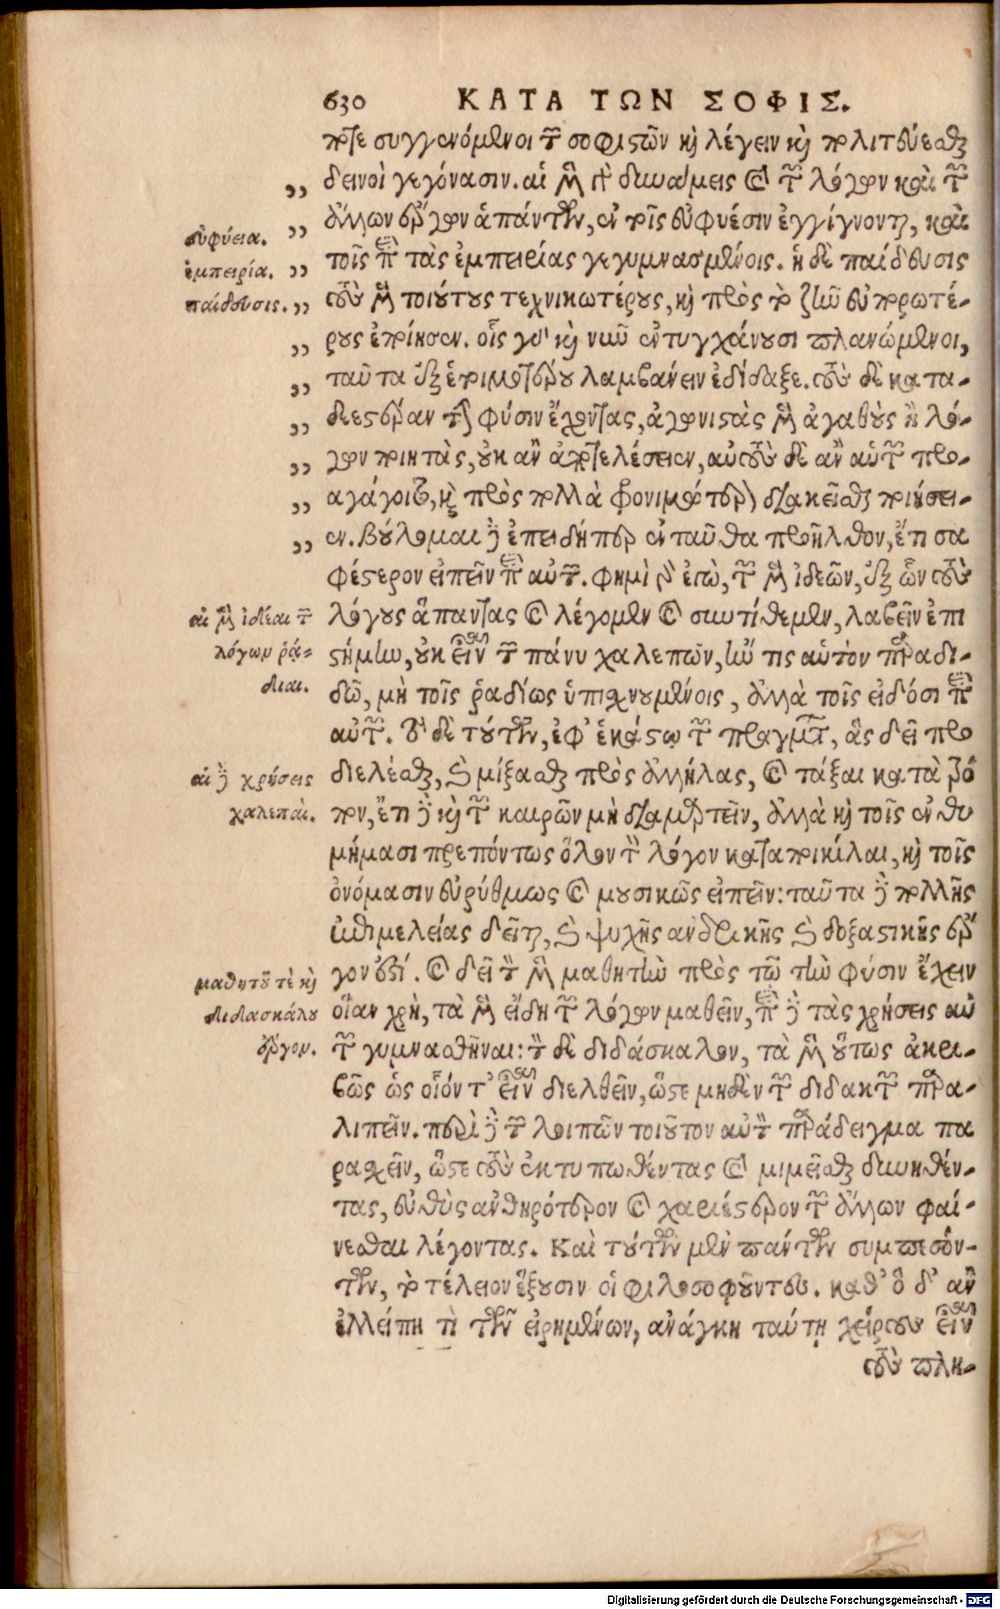 630 ΚΑΤΑ ΤΩΝ ΣΟΦΙΣ.
ποτε συγγενόμενοι τῶν σοφιστῶν καὶ λέγειν καὶ πολιτεύεσθαι
„ δεινοὶ γεγόνασιν. αἱ μὲν γὰρ δυνάμεις καὶ τῶν λόγων καὶ τῶν
„ ἄλλων ἔργων ἁπάντων, ἐν τοῖς εὐφυέσιν ἐγγίγνονται, καὶ
εὐφύεια.
„ τοῖς περὶ τὰς ἐμπειρίας γεγυμνασμένοις. ἡ δὲ παίδευσις
ἐμπειρία.
„ τοὺς μὲν τοιούτους τεχνικωτέρους, καὶ πρὸς τὸ ζῆν εὐπορωτέ-
παίδευσις.
„ ρους ἐποίησεν. οἷς γὰρ καὶ νῦν ἐντυγχάνουσι πλανώμενοι,
„ ταῦτα ἐξ ἑτοιμοτέρου λαμβάνειν ἐδίδαξε. τοὺς δὲ κατα-
„ δεεστέραν τὴν φύσιν ἔχοντας, ἀγωνιστὰς μὲν ἀγαθοὺς ἢ λό-
„ γων ποιητὰς, οὐκ ἂν ἀποτελέσειεν, αὐτοὺς δὲ ἂν αὑτῶν προ-
„ αγάγοιτο, καὶ πρὸς πολλὰ φρονιμωτέρως διακεῖσθαι ποιήσει-
„ εν. βούλομαι δὲ ἐπειδήπερ ἐνταῦθα προῆλθον, ἔτι σα
φέστερον εἰπεῖν περὶ αὐτῶν. φημὶ γὰρ ἐγὼ, τῶν μὲν ἰδεῶν, ἐξ ὧν τοὺς
αἱ μὲν ἰδέαι τῶν
λόγους ἅπαντας καὶ λέγομεν καὶ συντίθεμεν, λαβεῖν ἐπι
λόγων ῥᾴ-
στήμην, οὐκ εἶναι τῶν πάνυ χαλεπῶν, ἤν τις αὑτὸν παραδι-
διαι.
δῶ, μὴ τοῖς ῥαδίως ὑπισχνουμένοις, ἀλλὰ τοῖς εἰδόσι περὶ
αὐτῶν. τὸ δὲ τούτων, ἐφ’ ἑκάστῳ τῶν πραγμάτων, ἃς δεῖ προ
διελέσθαι, καὶ μίξασθαι πρὸς ἀλλήλας, καὶ τάξαι κατὰ τρό
αἱ δὲ χρήσεις
πον, ἔτι δὲ καὶ τῶν καιρῶν μὴ διαμαρτεῖν, ἀλλὰ καὶ τοῖς ἐνθυ
χαλεπαί.
μήμασι πρεπόντως ὅλον τὸν λόγον καταποικίλαι, καὶ τοῖς
ὀνόμασιν εὐρύθμως καὶ μουσικῶς εἰπεῖν: ταῦτα δὲ πολλῆς
ἐπιμελείας δεῖται, καὶ ψυχῆς ανδρικῆς καὶ δοξαστικῆς ἔρ
γον ἐστί. καὶ δεῖ τὸν μὲν μαθητὴν πρὸς τῷ τὴν φύσιν ἔχειν
μαθητοῦ τὲ καὶ
οἵαν χρὴ, τὰ μὲν εἴδη τῶν λόγων μαθεῖν, περὶ δὲ τὰς χρήσεις αὐ
διδασκάλου
τῶν γυμνασθῆναι: τὸν δὲ διδάσκαλον, τὰ μὲν οὕτως ἀκρι-
ἔργον.
βῶς ὡς οἷόν τ’ εἶναι διελθεῖν, ὥστε μηδὲν τῶν διδακτῶν παρα-
λιπεῖν. περὶ δὲ τῶν λοιπῶν τοιοῦτον αὑτὸν παράδειγμα πα
ρασχεῖν, ὥστε τοὺς ἐκτυπωθέντας καὶ μιμεῖσθαι δυνηθέν-
τας, εὐθὺς ανθηρότερον καὶ χαριέστερον τῶν ἄλλων φαί-
νεσθαι λέγοντας. Καὶ τούτων μὲν πάντων συμπεσόν-
των, τὸ τέλειον ἕξουσιν οἱ φιλοσοφοῦντες. καθ’ ὃ δ’ αν
ἐλλείπῃ τὶ τῶν εἰρημένων, ανάγκη ταύτῃ χεῖρον εἶναι
τοὺς πλη-